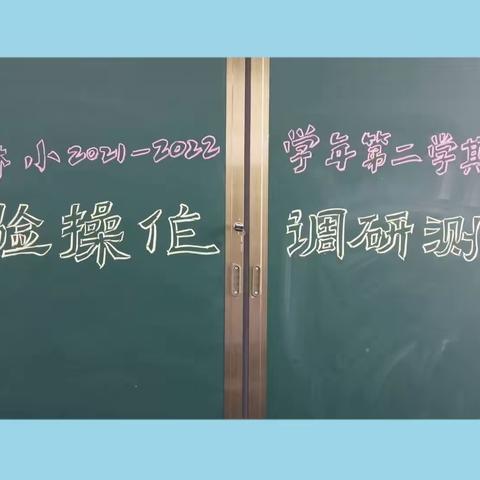 小2021-2022学年第二学期
验操作调研测